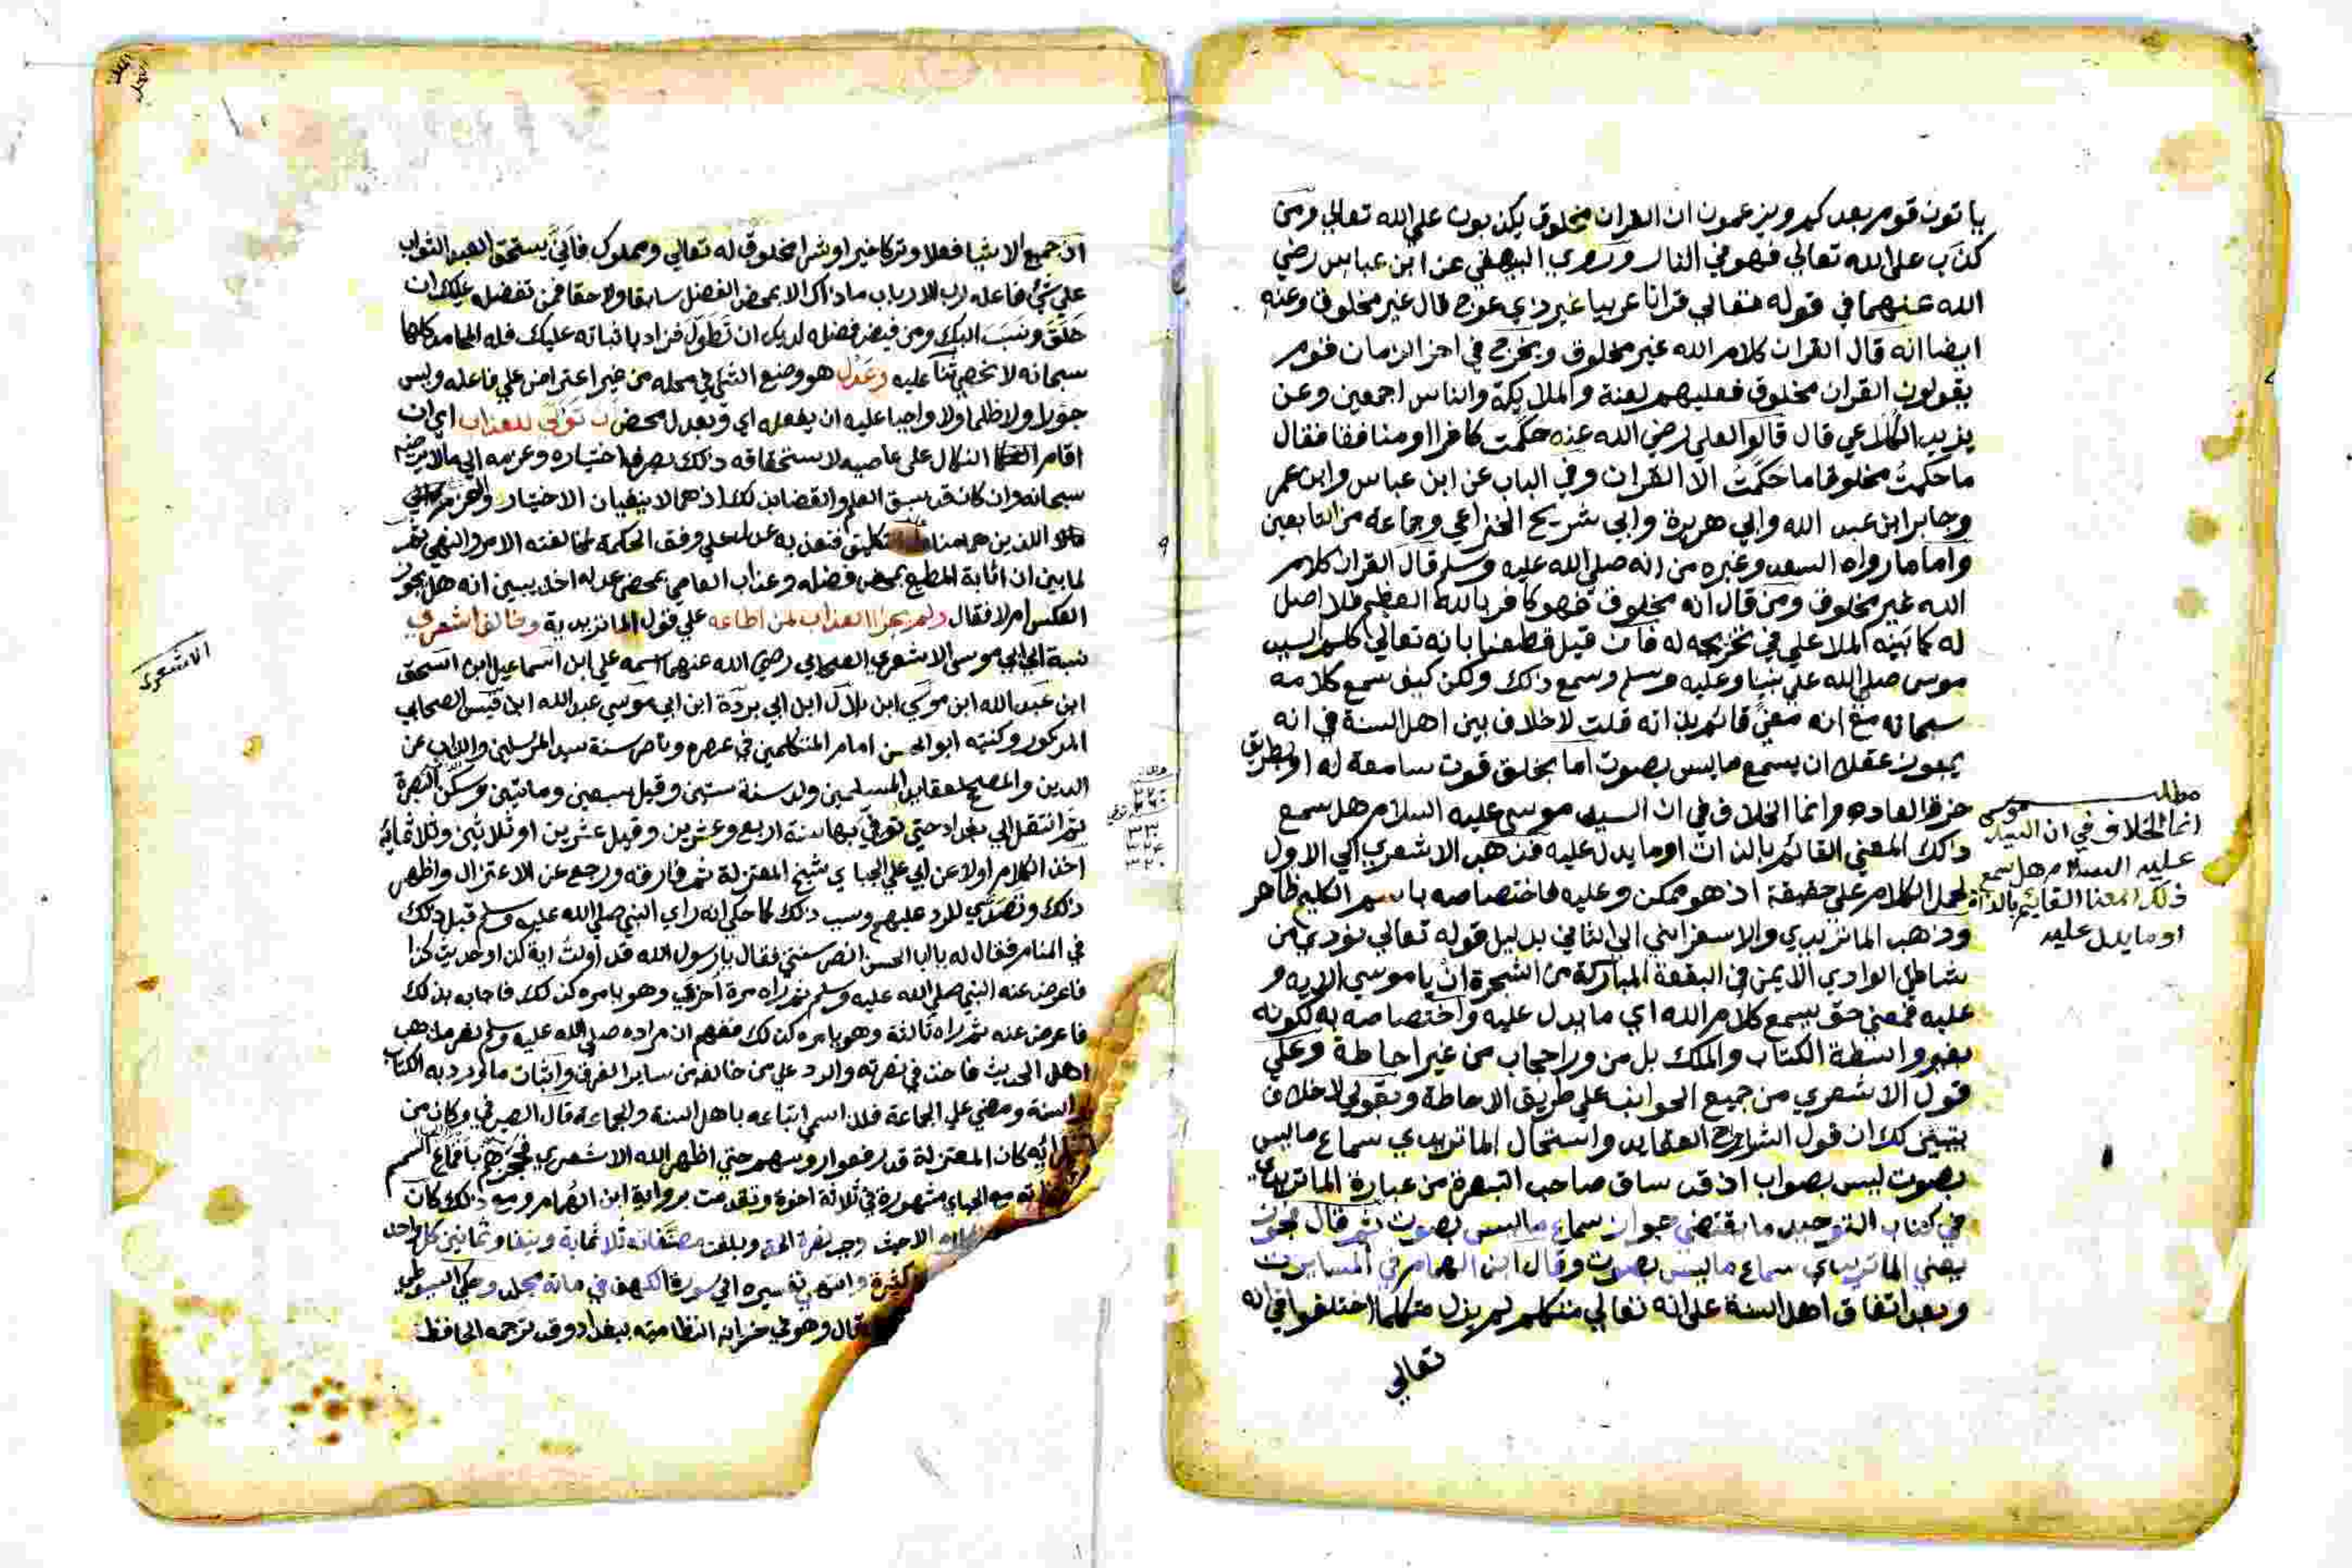 ياتون قوم بعدكم ويزعمون ان القران مخلوق يكذبون على الله تعالى ومن
كذب على الله تعالى فهو في النار وروي البيهقي عن ابن عباس رضي
الله عنهما في قوله تعالى قرانا عربيا غير ذي عوج قال غير مخلوق وعنه
ايضا انه قال القران كلام الله غير مخلوق ويخرج في اخر الزمان قوم
يقولون القران مخلوق فعليهم لعنة والملايكة والناس اجمعين وعن
يزيد الكلاعي قال قالوا لعلي رضي الله عنه حكمت كافرا ومنافقا فقال
ما حكمت مخلوقا ما حكمت الا القران وفي الباب عن ابن عباس وابن عمر
وجابر ابن عبد الله وابي هريرة وابي شريح الخزاعي وجماعه من التابعين
واما ما رواه السعد وغيره من انه صلى الله عليه وسلم قال القران كلام
الله غير مخلوق ومن قال انه مخلوق فهو كافر بالله العظيم فلا اصل
له كما بينه الملا علي في تخريجه له فان قيل قطعنا بانه تعالى كلم السيد
موسى صلى الله على نبينا وعليه وسلم وسمع ذلك ولكن كيف سمع كلامه
سبحانه مع انه معنى قائم بذاته قلت لا خلاف بين اهل السنة في انه
يجوز عقلا ان يسمع ما ليس بصوت اما بخلق قوت سامعة له او بطريق
خرق العاده وانما الخلاف في ان السيد موسى عليه السلام هل سمع
ذلك المعني القائم بالذات او ما يدل عليه فذهب الاشعري الي الاول
لحمل الكلام على حقيقة اذ هو ممكن وعليه فاختصاصه باسم الكليم ظاهر
وذهب الماتريدي والاسفرايني الي الثاني بدليل قوله تعالى نودي من
شاطئ الوادي الايمن في البقعة المباركة من الشجرة ان يا موسي الايه و
عليه فمعني حتى يسمع كلام الله اي ما يدل عليه واختصاصه به لكونه
بغير واسطة الكتاب والملك بل من ورا حجاب من غير احاطة وعلى
قول الاشعري من جميع الجوانب على طريق الاحاطة وبقولي لا خلاف
يتبين لك ان قول الشارح العقايد واستحال الماتريدي سماع ما ليس
بصوت ليس بصواب اذ قد ساق صاحب التبصرة من عبارة الماتريدي
في كتاب التوحيد ما يقتضي جواز سماع ما ليس بصوت ثم قال فجوز
يعني الماتريدي سماع ما ليس بصوت وقال ابن الهمام في المسايرت
وبعد اتفاق اهل السنة على انه تعالي متكلم لم يزل متكلما اختلفوا في انه
تعالي
مطلب
انما الخلاف في ان السيد موسى
عليه السلام هل سمع
ذلك المعنا القائم بالذات
او ما يدل عليه
ان جميع الاشيا فعلا وتركا خيرا وشرا مخلوق له تعالى ومملوك فاني يستحق العبد الثواب
علي شئ فاعله رب الارباب ما ذاك الا بمحض الفضل سابقا ولاحقا فمن تفضله عليك ان
خلق ونسب اليك ومن فيض فضله لديك ان تطول فزاد باثباته عليك فله المحامد كلها
سبحانه لا نحصي ثنا عليه وعدل هو وضع الشئ في محله من غير اعتراض علي فاعله وليس
جورا ولا ظلما ولا واجبا عليه ان يفعله اي وبعدل محض ان توالى للعذاب اي ان
اقام النكال على عاصيه لاستحقاقه ذلك بصرف اختياره وعزمه الى ما لا يرضيه
سبحانه وان كان قد سبق العلم والقضا بذلك اذ هما لا ينفيان الاختيار والعزم
اللذين هما مناط التكليف فتعذيبه عدل على وفق الحكمة لمخالفته الامر والنهي ثم
لما بين ان اثابة المطيع بمحض فضله وعذاب العاصي بمحض عدله اخذ يبين انه هل يجوز
العكس ام لا فقال ولم يجز العذاب لمن اطاعه علي قول الماتريدية وخالف اشعري
نسبة الي ابي موسى الاشعري الصحابي رضي الله عنهما اسمه علي ابن اسماعيل ابن اسحق
ابن عبد الله ابن موسي ابن بلال ابن ابي بردة ابن ابي موسي عبد الله ابن قيس الصحابي
المذكور وكنيته ابو الحسن امام المتكلمين في عصره وناصر سنة سيد المرسلين والذاب عن
الدين والمصحح لعقايد المسلمين ولد سنة ستين وقيل سبعين ومائتين وسكن البصرة
ثم انتقل الي بغداد حتي توفي بها سنة اربع وعشرين وقيل عشرين او ثلاثين وثلاثمائه
اخذ الكلام اولا عن ابي علي الجباي شيخ المعتزلة ثم فارقه ورجع عن الاعتزال واظهر
ذلك وتصدي للرد عليهم وسبب ذلك كما حكي انه راي النبي صلى الله عليه وسلم قبل ذلك
في المنام فقال له يا ابا الحسن انصر سنتي فقال يا رسول الله قد اولت اية كذا وحديث كذا
فاعرض عنه النبي صلى الله عليه وسلم ثم راه مرة اخرى وهو يامره كذلك فاجابه بذلك
فاعرض عنه ثم راه ثالثة وهو يامره كذلك ففهم ان مراده صلى الله عليه وسلم نصر مذهب
اهل الحديث فاخذ في نصرته والرد علي من خالفه من ساير الفرق واثبات ما ورد به الكتاب
والسنة ومضي علي الجماعة فلذا سمي اتباعه باهل السنة والجماعه قال الصيرفي وكان من
كان المعتزلة قد رفعوا روسهم حتي اظهر الله الاشعري فحجزهم باقماع السمسم
مع الجباي مشهورة في ثلاثة اخوة وتقدمت برواية ابن الهمام ومع ذلك كان
وبلغت مصنفاته ثلاثماية ونيفا وثمانين كل واحد
كثيرة وانتهي تفسيره الي سورة الكهف في مائه مجلد وحكي السيوطي
قال وهو في خزانه النظامية ببغداد وقد ترجمه الحافظ
الاشعري